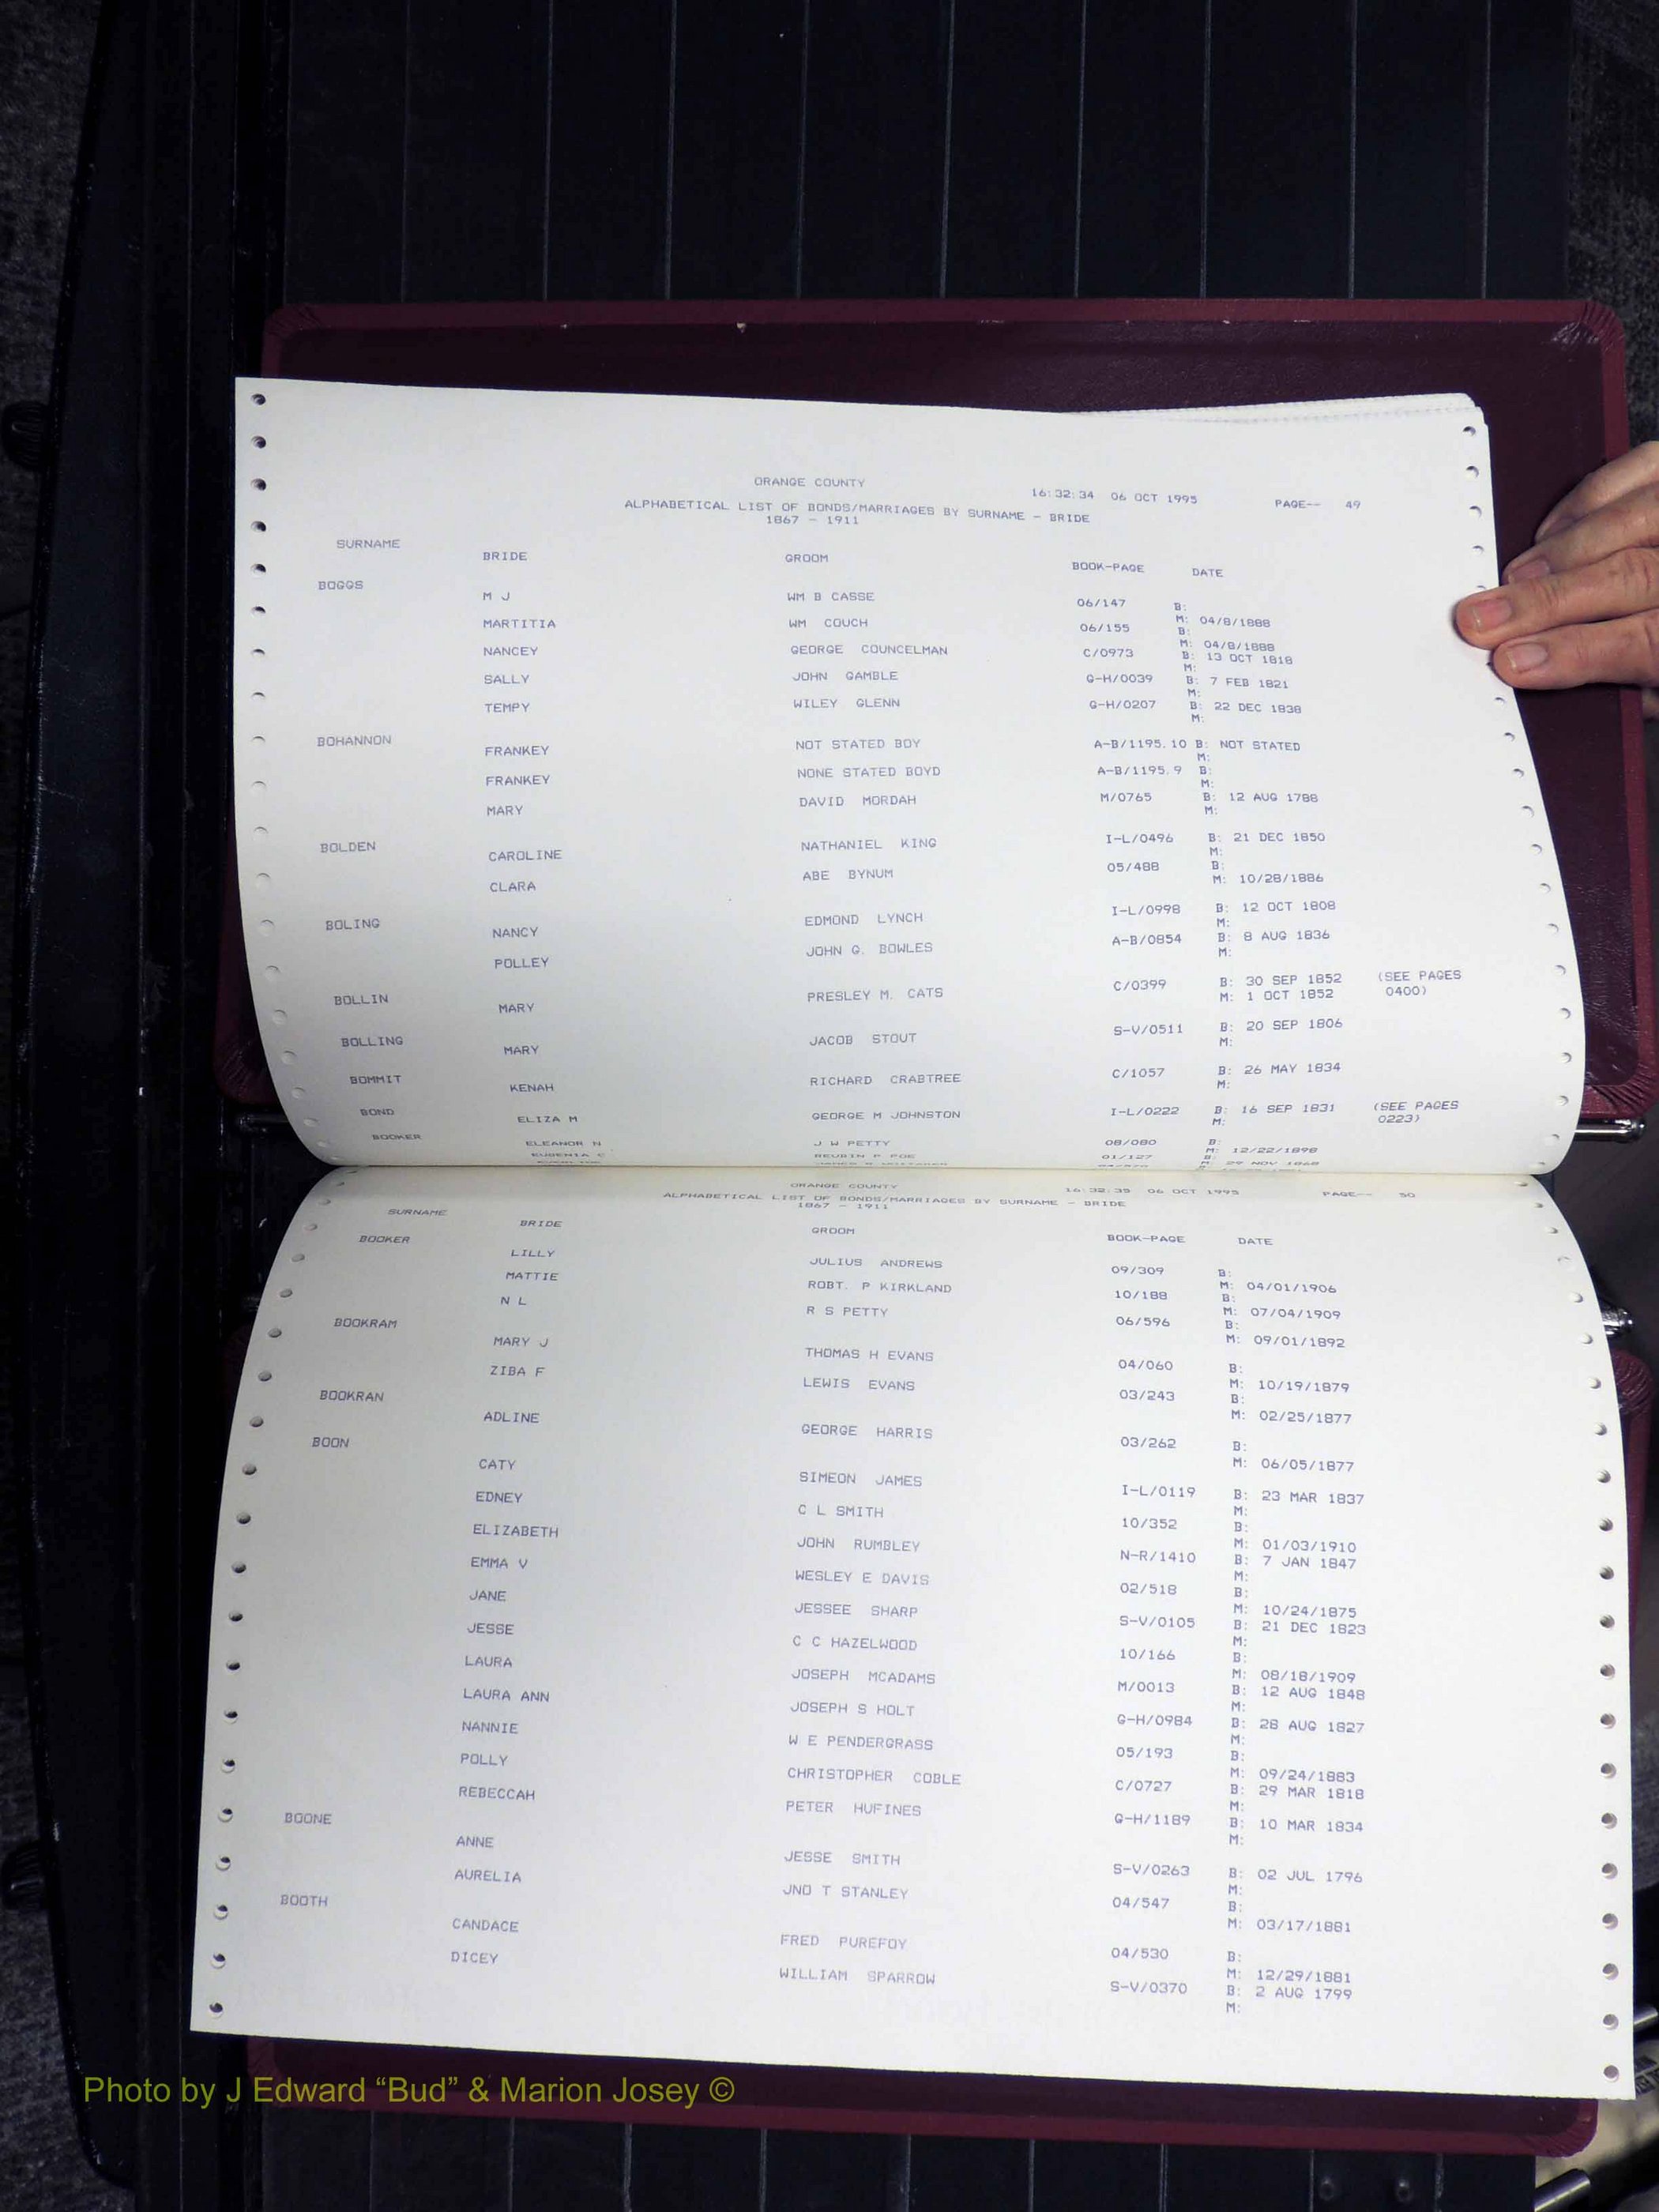 ORANGE COUNTY 16:32:34 06 OCT 1995 PAGE-- 49
ALPHABETICAL LIST OF BONDS/MARRIAGES BY SURNAME - BRIDE
1867 - 1911
SURNAME BRIDE GROOM BOOK-PAGE DATE
BOGGS
M J WM B CASSE 06/147 B:
M: 04/8/1888
MARTITIA WM COUCH 06/155 B:
M: 04/8/1888
NANCEY GEORGE COUNCELMAN C/0973 B: 13 OCT 1818
M:
SALLY JOHN GAMBLE G-H/0039 B: 7 FEB 1821
M:
TEMPY WILEY GLENN G-H/0207 B: 22 DEC 1838
M:
BOHANNON
FRANKEY NOT STATED BOY A-B/1195.10 B: NOT STATED
M:
FRANKEY NONE STATED BOYD A-B/1195.9 B:
M:
MARY DAVID MORDAH M/0765 B: 12 AUG 1788
M:
BOLDEN
CAROLINE NATHANIEL KING I-L/0496 B: 21 DEC 1850
M:
CLARA ABE BYNUM 05/488 B:
M: 10/28/1886
BOLING
NANCY EDMOND LYNCH I-L/0998 B: 12 OCT 1808
M:
POLLEY JOHN G. BOWLES A-B/0854 B: 8 AUG 1836
M:
BOLLIN
MARY PRESLEY M. CATS C/0399 B: 30 SEP 1852 (SEE PAGES
M: 1 OCT 1852 0400)
BOLLING
MARY JACOB STOUT S-V/0511 B: 20 SEP 1806
M:
BOMMIT
KENAH RICHARD CRABTREE C/1057 B: 26 MAY 1834
M:
BOND
ELIZA M GEORGE M JOHNSTON I-L/0222 B: 16 SEP 1831 (SEE PAGES
M: 0223)
BOOKER
ELEANOR N J W PETTY 08/080 B:
M: 12/22/1898
EUGENIA C REUBIN P POE 01/127 B:
M: 29 NOV 1868
ORANGE COUNTY 16:32:35 06 OCT 1995 PAGE-- 50
ALPHABETICAL LIST OF BONDS/MARRIAGES BY SURNAME - BRIDE
1867 - 1911
SURNAME BRIDE GROOM BOOK-PAGE DATE
BOOKER
LILLY JULIUS ANDREWS 09/309 B:
M: 04/01/1906
MATTIE ROBT. P KIRKLAND 10/188 B:
M: 07/04/1909
N L R S PETTY 06/596 B:
M: 09/01/1892
BOOKRAM
MARY J THOMAS H EVANS 04/060 B:
M: 10/19/1879
ZIBA F LEWIS EVANS 03/243 B:
M: 02/25/1877
BOOKRAN
ADLINE GEORGE HARRIS 03/262 B:
M: 06/05/1877
BOON
CATY SIMEON JAMES I-L/0119 B: 23 MAR 1837
M:
EDNEY C L SMITH 10/352 B:
M: 01/03/1910
ELIZABETH JOHN RUMBLEY N-R/1410 B: 7 JAN 1847
M:
EMMA V WESLEY E DAVIS 02/518 B:
M: 10/24/1875
JANE JESSEE SHARP S-V/0105 B: 21 DEC 1823
M:
JESSE C C HAZELWOOD 10/166 B:
M: 08/18/1909
LAURA JOSEPH MCADAMS M/0013 B: 12 AUG 1848
M:
LAURA ANN JOSEPH S HOLT G-H/0984 B: 28 AUG 1827
M:
NANNIE W E PENDERGRASS 05/193 B:
M: 09/24/1883
POLLY CHRISTOPHER COBLE C/0727 B: 29 MAR 1818
M:
REBECCAH PETER HUFINES G-H/1189 B: 10 MAR 1834
M:
BOONE
ANNE JESSE SMITH S-V/0263 B: 02 JUL 1796
M:
AURELIA JNO T STANLEY 04/547 B:
M: 03/17/1881
BOOTH
CANDACE FRED PUREFOY 04/530 B:
M: 12/29/1881
DICEY WILLIAM SPARROW S-V/0370 B: 2 AUG 1799
M:
Photo by J Edward “Bud” & Marion Josey ©